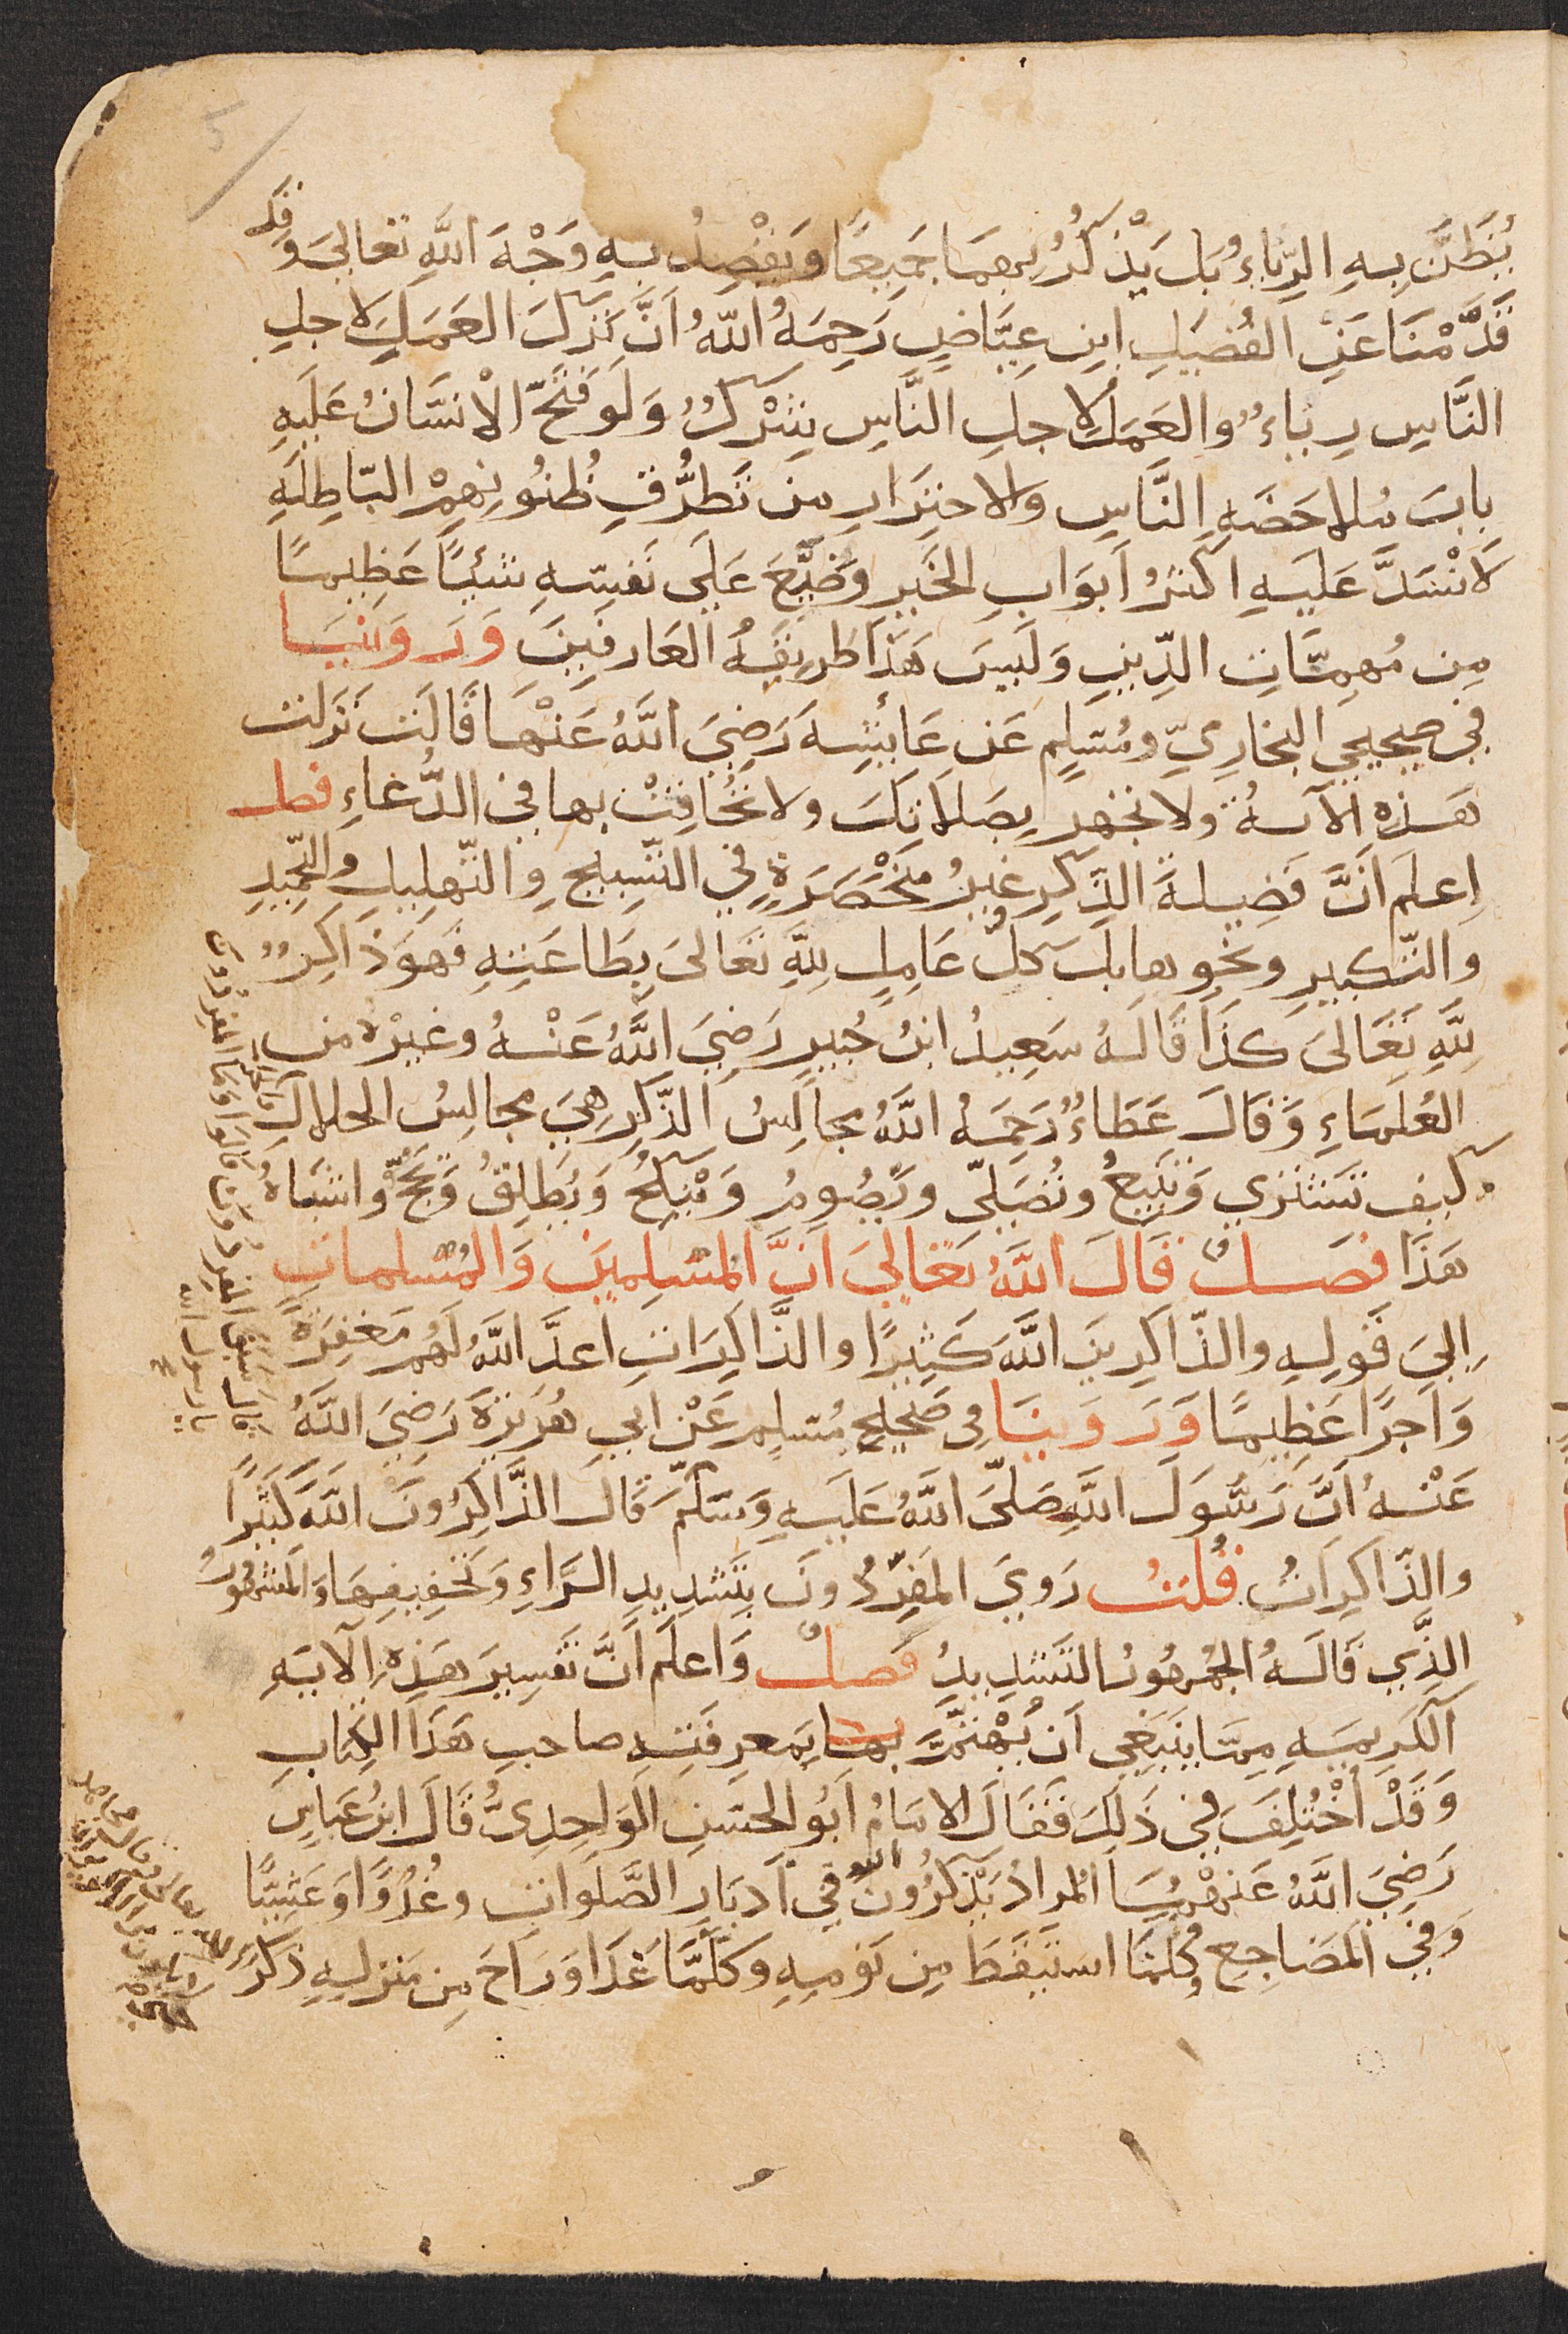 يُظَنَّ بِهِ الرِّيَاءُ بَل يَذْكُرُ بِهِمَا جَمِيعًا وَيَقْصِدُ بِهِ وَجْهَ اللَّهِ تعالىَ وَقَد
قَدَّمْنَا عَنِ الفُضَيلِ ابنِ عِيَاضٍ رَحِمَهُ اللّهُ انَّ تَركَ العَمَلِ لاجلِ
النَّاسِ رِياءٌ والعَمَلُ لاجلِ النَّاسِ شِرْكٌ وَلَو فَتَحَ الْانسَانُ عَلَيهِ
بابَ مُلاحَضَهِ النَّاسِ والاحتِرَازِ مِن تَطرُّقِ ظُنُونِهِمْ البَاطِلَهِ
لَانْسَدَّ عَلَيهِ اكثرُ اَبوَابِ الخَيرِ وَضَيَّعَ عَلَى نَفسِهِ شَيئًا عَظِيمًا
مِن مُهِمَّاتِ الدِّينِ وَلَيسَ هَذَا طَرِيقَهُ العَارفِينَ وَرَوَينَا
في صحيحي البخاريّ ومُسلِم عَن عَائشِهَ رَضِيَ اللَّهُ عَنْهَا قَالَت نَزَلت
هَذِهِ الآيهُ ولا تجهر بِصَلاتِكَ ولا تُخَافِتْ بها في الدُّعاءِ فصل
اِعلَم اَنَّ فَضِيلهَ الذِّكرِ غيرُ مُنحْصَرَةٍ في التَّسبِيحِ وِالتَّهلِيلِ والتَّحمِيدِ
والتَّكبيرِ ونحوِها بل كلُّ عَامِلٍ لِلَّهِ تعَالىَ بِطَاعَتِهِ فَهوَ ذَاكِرٌ
لِلَّهِ تَعَالىَ كذَا قَالَهُ سَعِيدُ ابنُ جُبيرٍ رَضِيَ اللَّهُ عَنْهُ وغيرْه من
العُلَمَاءِ وَقَالَ عَطَاءٌ رَحِمَهُ اللَّهُ مجالِسُ الذِّكرِ هِيَ مجالِسُ الحلالِ
كيف تَشتَري وَتَبِيعُ وتُصَلّي وتَصُومُ وَتَنْكِحُ وَتُطَلِقُ وَتَحُجُّ واشبَاهُ
هَذَا فصَلٌ قَالَ اللَّهُ تَعَالىَ اِنَّ المُسْلِمِينَ وَالمُسْلماتِ
اِلىَ قَولِهِ والذّاكِرينَ اللَّهَ كَثِيرًا والذَّاكِرَاتِ اَعدَّ اللَّهُ لَهُم مَغفِرَةً
وَاَجرًا عَظِيمًا وَرَوَينَا في صَحيحِ مُسلِم عَنْ ابي هُرَيرَةَ رَضِيَ اللَّهُ
عَنْهُ اَنَّ رَسُولَ اللَّهِ صَلىّ اللَّهُ عَلَيهِ وَسَلّمَ قَالَ الذَّاكِرُونَ اللَّهَ كَثيرًا
والذّاكِراتُ قُلتُ رَوِيَ المُفَرِّدُونَ بِتَشدِيدِ الرَّاءِ وَتَخفِيفِهَا وَالمَشهُورُ
الذِّي قَالَهُ الجُمهُورُ التَشدِيدُ فَصلٌ وَاعلَم اَنَّ تَفسِيرَ هَذِهِ الآيَهِ
الكَرِيمَهِ مِمَّا يَنبَغِي اَن يُهْتَمَّ بها بمَعرِفَتِهِ صاحبِ هَذَا الكِتابِ
وَقَدْ اُخْتُلِفَ في ذَلِكَ فَقَالَ الامَامُ اَبُو الحَسَنِ الوَاحِدِىُّ قَالَ ابنُ عبَاسٍ
رَضِيَ اللَّهُ عَنهْمَا المُرادُ يَذْكُرُونَ الله في اَدبَارِ الصَّلَواتِ وغُدُوًّا وَعَشِيًّا
وَفِي المَضَاجِعِ وكُلمَّا استَيقَظَ مِن نَومِهِ وكلّمَّا غَدَا وَرَاحَ مِن مَنزِلِهِ ذكَرَ
قال سبق المفرِّدون قالوا وما المفرِّدون
يا رسول الله